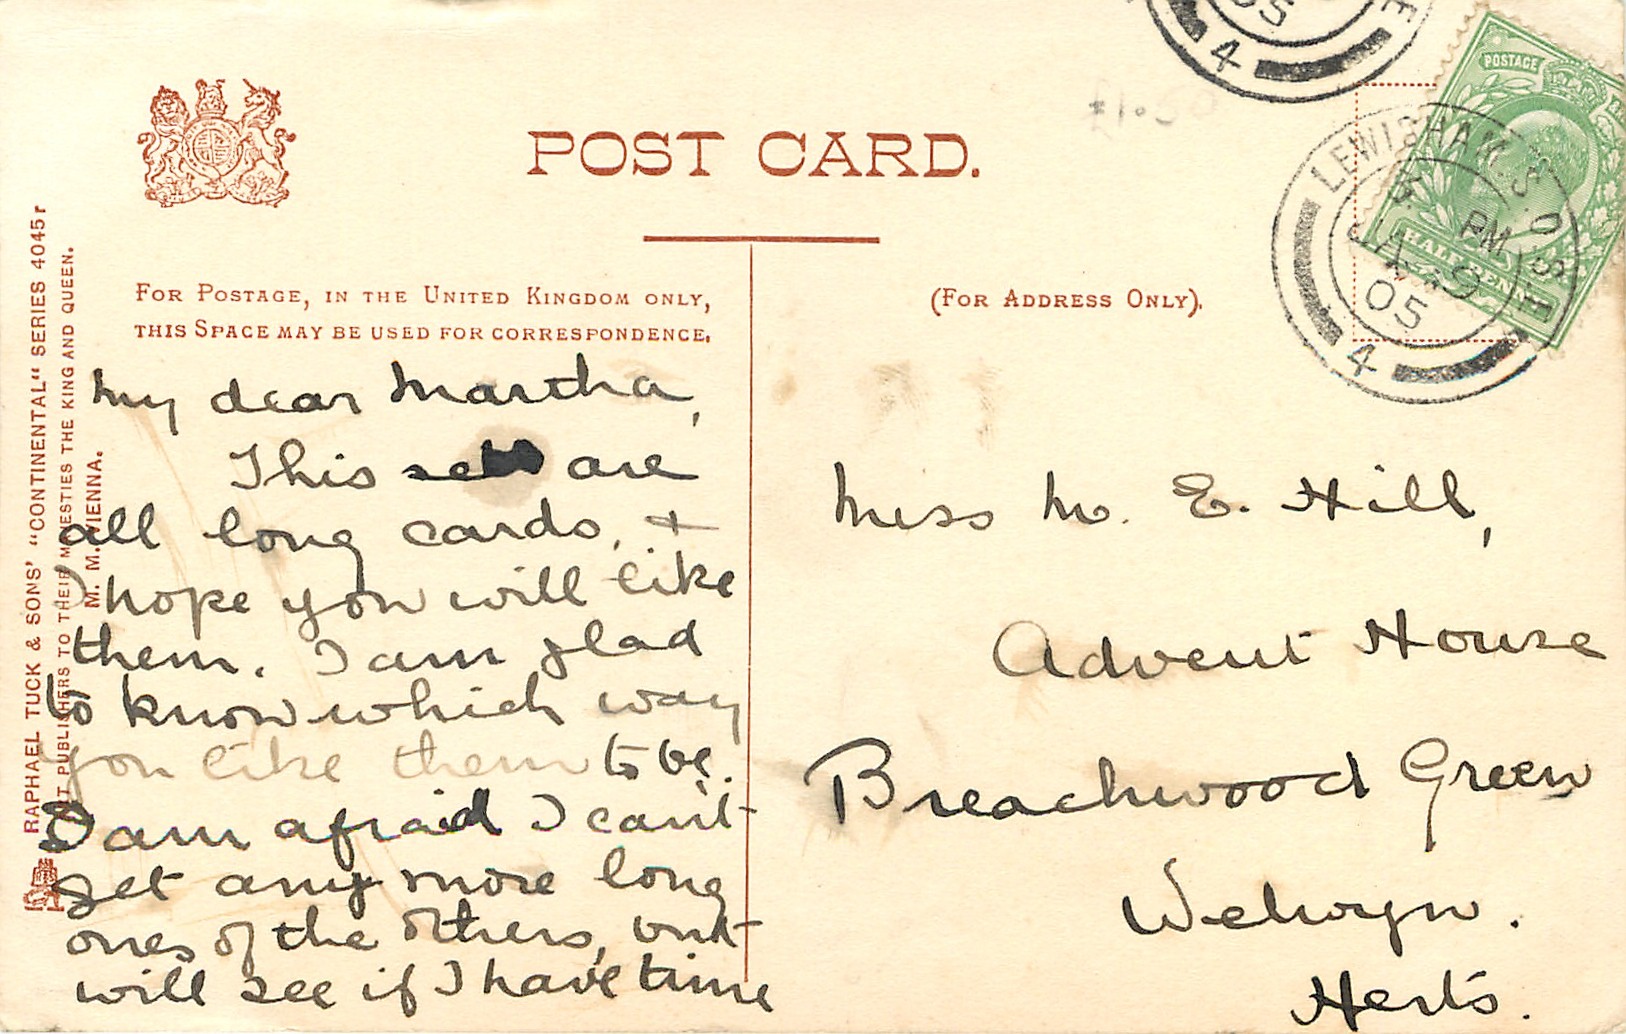 POST CARD.
FOR POSTAGE, IN THE UNITED KINGDOM ONLY,
THIS SPACE MAY BE USED FOR CORRESPONDENCE.
(FOR ADDRESS ONLY).
RAPHAEL TUCK & SONS' "CONTINENTAL" SERIES 4045r
ART PUBLISHERS TO THEIR MAJESTIES THE KING AND QUEEN.
M. M. VIENNA.
£1.50
POSTAGE
HALF PENNY
LEWISHAM. S.O. S.E
PM
JA 9
05
4
05
E
4
My dear Martha,
This set are
all long cards, +
I hope you will like
them. I am glad
to know which way
you like them to be.
I am afraid I can't
get any more long
ones of the others, but
will see if I have time
Miss M. E. Hill,
Advent House
Breachwood Green
Welwyn.
Herts.